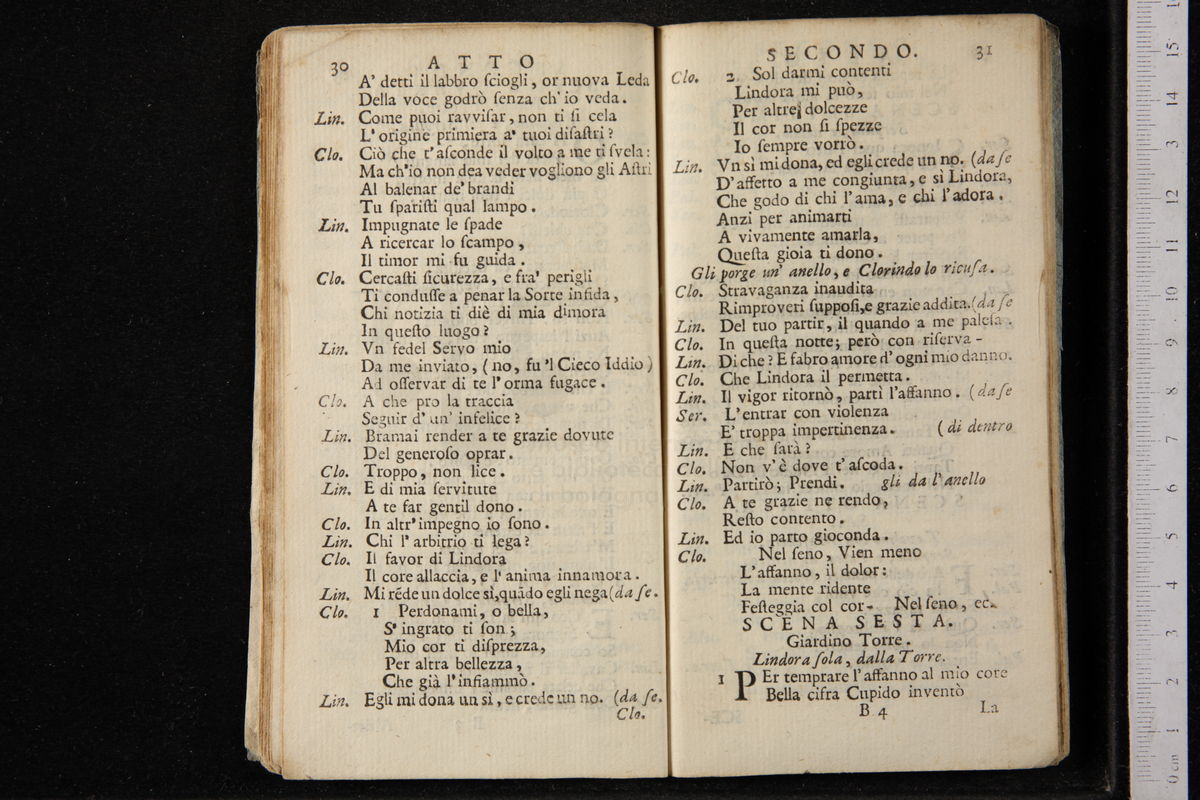 30 ATTO
A' detti il labbro ſciogli, or nuova Leda
Della voce godrò ſenza ch' io veda.
Lin. Come puoi ravviſar, non ti ſi cela
L' origine primiera a' tuoi diſaſtri?
Clo. Ciò che t'aſconde il volto a me ti ſvela:
Ma ch'io non dea veder vogliono gli Aſtri
Al balenar de' brandi
Tu ſpariſti qual lampo.
Lin. Impugnate le ſpade
A ricercar lo ſcampo,
Il timor mi fu guida.
Clo. Cercaſti ſicurezza, e fra' perigli
Ti conduſſe a penar la Sorte infida,
Chi notizia ti diè di mia dimora
In queſto luogo?
Lin. Vn fedel Servo mio
Da me inviato, (no, fu 'l Cieco Iddio)
Ad oſſervar di te l' orma fugace.
Clo. A che pro la traccia
Seguir d' un' infelice?
Lin. Bramai render a te grazie dovute
Del generoſo oprar.
Clo. Troppo, non lice.
Lin. E di mia ſervitute
A te far gentil dono.
Clo. In altr' impegno io ſono.
Lin. Chi l' arbitrio ti lega?
Clo. Il favor di Lindora
Il core allaccia, e l' anima innamora.
Lin. Mi rēde un dolce sì, quādo egli nega (da ſe.
Clo. 1 Perdonami, o bella,
S' ingrato ti ſon;
Mio cor ti diſprezza,
Per altra bellezza,
Che già l'infiammò.
Lin. Egli mi dona un sì, e crede un no. (da ſe.
Clo.
SECONDO. 31
Clo. 2. Sol darmi contenti
Lindora mi può,
Per altre dolcezze
Il cor non ſi ſpezze
Io ſempre vorrò.
Lin. Vn sì mi dona, ed egli crede un no. (da ſe
D'affetto a me congiunta, e sì Lindora,
Che godo di chi l'ama, e chi l'adora.
Anzi per animarti
A vivamente amarla,
Queſta gioia ti dono.
Gli porge un' anello, e Clorindo lo ricuſa.
Clo. Stravaganza inaudita
Rimproveri ſuppoſi, e grazie addita. (da ſe
Lin. Del tuo partir, il quando a me paleſa.
Clo. In queſta notte; però con riſerva-
Lin. Di che? E fabro amore d' ogni mio danno.
Clo. Che Lindora il permetta.
Lin. Il vigor ritornò, partì l'affanno. (da ſe
Ser. L'entrar con violenza
E' troppa impertinenza. (di dentro
Lin. E che ſarà?
Clo. Non v' è dove t' aſcoda.
Lin. Partirò; Prendi. gli da l'anello
Clo. A te grazie ne rendo,
Reſto contento.
Lin. Ed io parto gioconda.
Clo. Nel ſeno, Vien meno
L'affanno, il dolor:
La mente ridente
Feſteggia col cor- Nel ſeno, ec.
SCENA SESTA.
Giardino Torre.
Lindora ſola, dalla Torre.
1 PEr temprare l'affanno al mio core
Bella cifra Cupido inventò
B 4 La